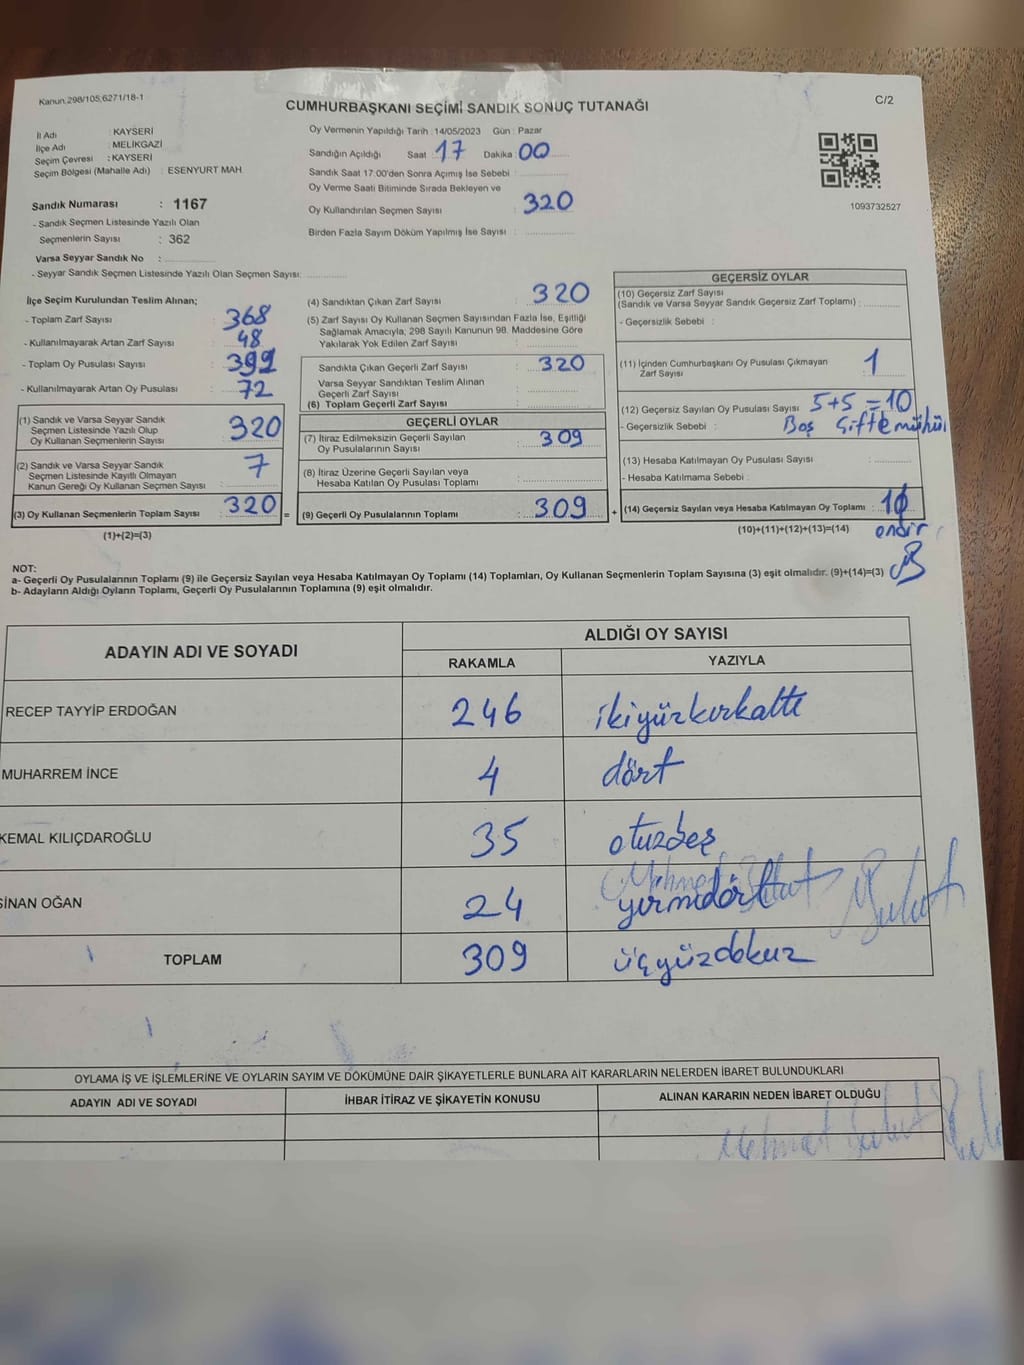 Kanun.298/105,6271/18-1
CUMHURBAŞKANI SEÇİMİ SANDIK SONUÇ TUTANAĞI
C/2
İl Adı : KAYSERİ
İlçe Adı : MELİKGAZİ
Seçim Çevresi : KAYSERİ
Seçim Bölgesi (Mahalle Adı) : ESENYURT MAH
Sandık Numarası : 1167
- Sandık Seçmen Listesinde Yazılı Olan
Seçmenlerin Sayısı : 362
Varsa Seyyar Sandık No :
- Seyyar Sandık Seçmen Listesinde Yazılı Olan Seçmen Sayısı:
Oy Vermenin Yapıldığı Tarih : 14/05/2023 Gün : Pazar
Sandığın Açıldığı Saat : 17 Dakika : 00
Sandık Saat 17:00'den Sonra Açımış İse Sebebi :
Oy Verme Saati Bitiminde Sırada Bekleyen ve
Oy Kullandırılan Seçmen Sayısı : 320
Birden Fazla Sayım Döküm Yapılmış İse Sayısı :
1093732527
İlçe Seçim Kurulundan Teslim Alınan;
- Toplam Zarf Sayısı : 368
- Kullanılmayarak Artan Zarf Sayısı : 48
- Toplam Oy Pusulası Sayısı : 392
- Kullanılmayarak Artan Oy Pusulası : 72
(1) Sandık ve Varsa Seyyar Sandık
Seçmen Listesinde Yazılı Olup
Oy Kullanan Seçmenlerin Sayısı : 320
(2) Sandık ve Varsa Seyyar Sandık
Seçmen Listesinde Kayıtlı Olmayan
Kanun Gereği Oy Kullanan Seçmen Sayısı : 7
(3) Oy Kullanan Seçmenlerin Toplam Sayısı : 320 =
(1)+(2)=(3)
(4) Sandıktan Çıkan Zarf Sayısı : 320
(5) Zarf Sayısı Oy Kullanan Seçmen Sayısından Fazla İse, Eşitliği
Sağlamak Amacıyla, 298 Sayılı Kanunun 98. Maddesine Göre
Yakılarak Yok Edilen Zarf Sayısı :
Sandıkta Çıkan Geçerli Zarf Sayısı : 320
Varsa Seyyar Sandıktan Teslim Alınan
Geçerli Zarf Sayısı :
(6) Toplam Geçerli Zarf Sayısı :
GEÇERLİ OYLAR
(7) İtiraz Edilmeksizin Geçerli Sayılan
Oy Pusulalarının Sayısı : 309
(8) İtiraz Üzerine Geçerli Sayılan veya
Hesaba Katılan Oy Pusulası Toplamı :
(9) Geçerli Oy Pusulalarının Toplamı : 309 +
GEÇERSİZ OYLAR
(10) Geçersiz Zarf Sayısı
(Sandık ve Varsa Seyyar Sandık Geçersiz Zarf Toplamı) :
- Geçersizlik Sebebi :
(11) İçinden Cumhurbaşkanı Oy Pusulası Çıkmayan
Zarf Sayısı : 1
(12) Geçersiz Sayılan Oy Pusulası Sayısı : 5+5=10
- Geçersizlik Sebebi : Boş Çift mühür
(13) Hesaba Katılmayan Oy Pusulası Sayısı :
- Hesaba Katılmama Sebebi :
(14) Geçersiz Sayılan veya Hesaba Katılmayan Oy Toplamı :
(10)+(11)+(12)+(13)=(14)
NOT:
a- Geçerli Oy Pusulalarının Toplamı (9) ile Geçersiz Sayılan veya Hesaba Katılmayan Oy Toplamı (14) Toplamları, Oy Kullanan Seçmenlerin Toplam Sayısına (3) eşit olmalıdır. (9)+(14)=(3)
b- Adayların Aldığı Oyların Toplamı, Geçerli Oy Pusulalarının Toplamına (9) eşit olmalıdır.
ADAYIN ADI VE SOYADI ALDIĞI OY SAYISI
RAKAMLA YAZIYLA
RECEP TAYYİP ERDOĞAN 246 ikiyüzkırkaltı
MUHARREM İNCE 4 dört
KEMAL KILIÇDAROĞLU 35 otuzbeş
SİNAN OĞAN 24 yirmidört
Mehmet Bulut Bulut
TOPLAM 309 üçyüzdokuz
OYLAMA İŞ VE İŞLEMLERİNE VE OYLARIN SAYIM VE DÖKÜMÜNE DAİR ŞİKAYETLERLE BUNLARA AİT KARARLARIN NELERDEN İBARET BULUNDUKLARI
ADAYIN ADI VE SOYADI İHBAR İTİRAZ VE ŞİKAYETİN KONUSU ALINAN KARARIN NEDEN İBARET OLDUĞU
Mehmet Bulut